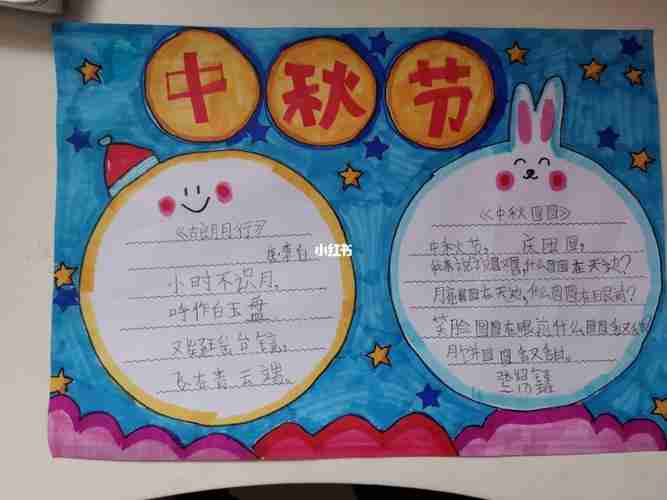 中秋节
《古朗月行》
唐·李白
小时不识月,
呼作白玉盘
又疑瑶台镜,
飞在青云端。
小红书
《中秋圆圆》
中秋节, 庆团圆,
我来说 圆,什么圆圆在天边?
月亮圆圆在天边,什么圆圆在眼前?
笑脸圆圆在眼前什么圆圆 又
月饼圆圆 又